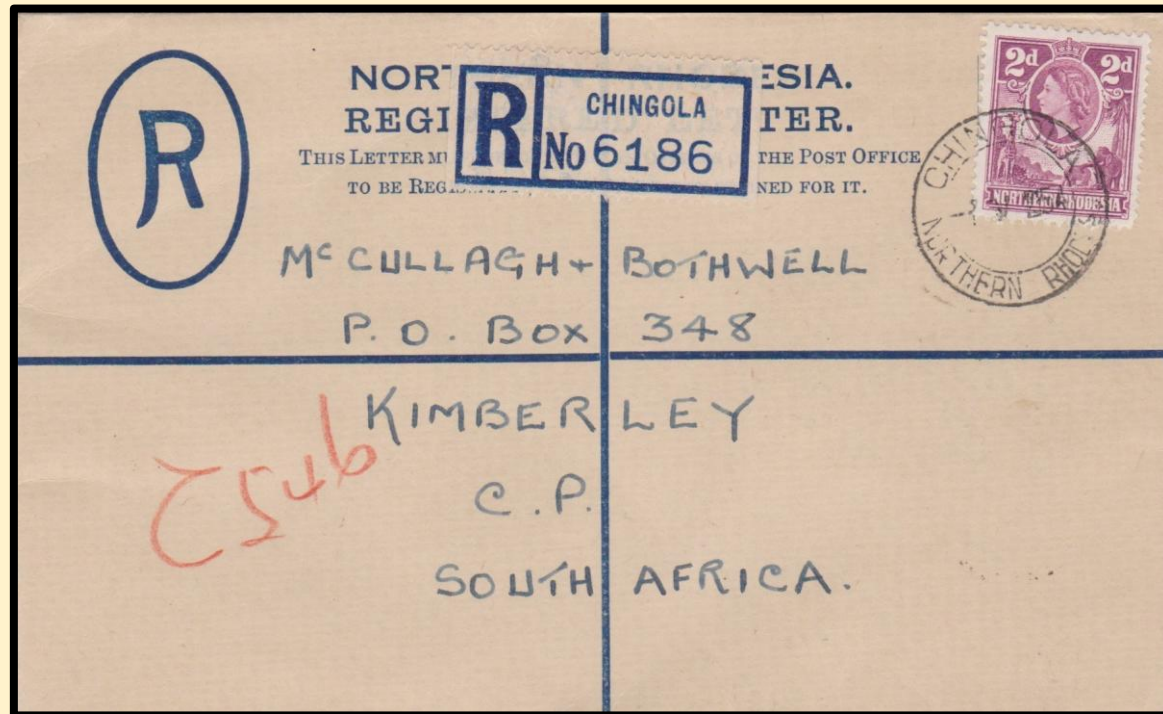 NOR ESIA.
REGI TER.
THIS LETTER THE POST OFFICE
TO BE NED FOR IT.
R
R
CHINGOLA
No 6186
2d 2d
NORTHERN RHODESIA
CHINGOLA
NORTHERN
Mc CULLAGH + BOTHWELL
P. O. Box 348
KIMBERLEY
C. P.
SOUTH AFRICA.